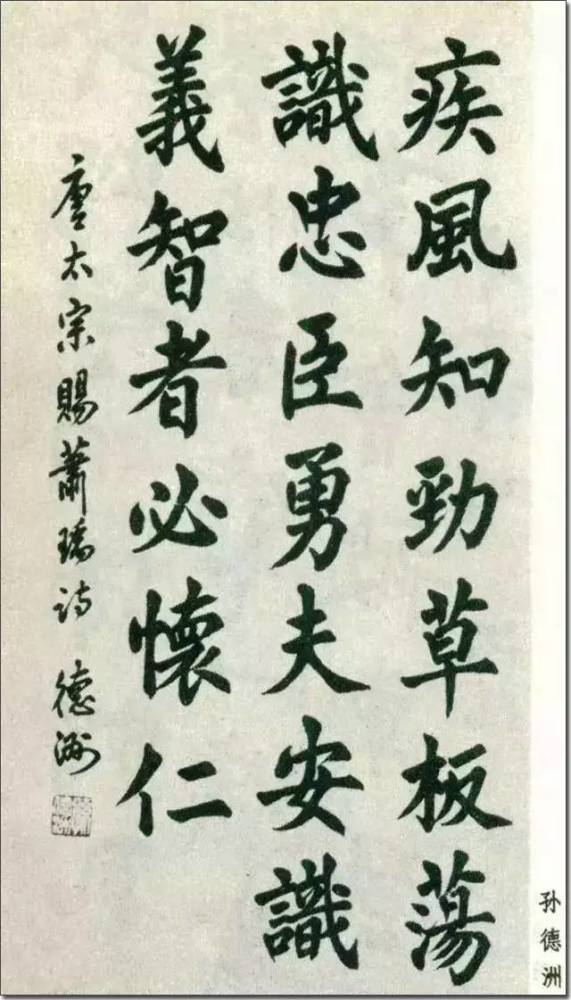 疾風知勁草板蕩
識忠臣勇夫安識
義智者必懷仁
唐太宗賜蕭瑀诗 德洲
孙德洲